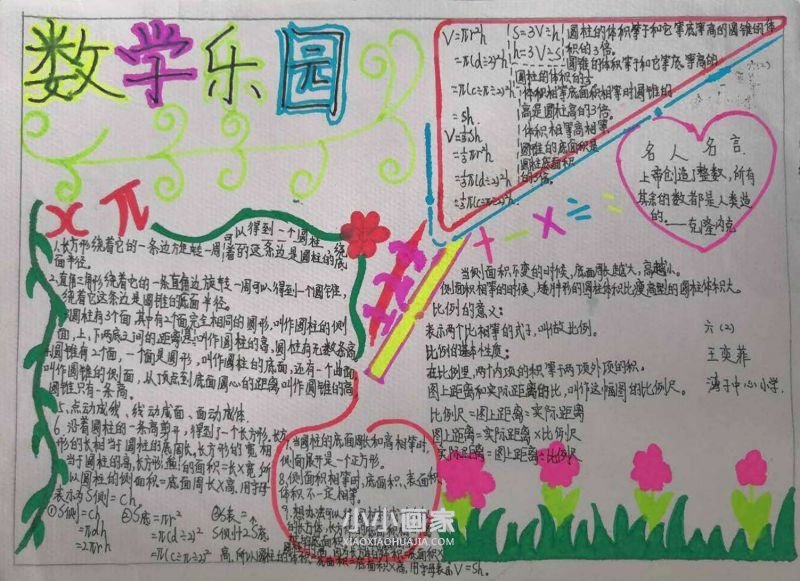 数学乐园
V=πr²h
=π(d÷2)²h
=π(c÷π÷2)²h
=Sh
V=⅓Sh
=⅓πr²h
=⅓π(d÷2)²h
=⅓π(c÷π÷2)²h
S=3V÷h
h=3V÷S
圆柱的体积等于和它等底等高的圆锥的体
积的3倍。
圆锥的体积等于和它等底等高的
圆柱的体积的⅓
体积相等底面积相等时圆锥的
高是圆柱高的3倍。
体积相等高相等,
圆锥的底面积是
圆柱底面积
的3倍。
六(2)
名人名言
上帝创造了整数,所有
其余的数都是人类造
的。——克隆内克
x π
+ - × ÷ =
1.长方形绕着它的一条边方旋转一周可以得到一个圆柱,绕
着的这条边是圆柱的底
面半径。
2.直角三角形绕着它的一条直角边旋转一周可以得到一个圆锥,
绕着它这条边是圆锥的底面半径。
圆柱有3个面,其中有2个面完全相同的圆形,叫作圆柱的侧
面,上、下两底之间的距离叫作圆柱的高。圆柱有无数条高
圆锥有2个面,一个面是圆形,叫作圆柱的底面,还有一个曲面
叫作圆锥的侧面,从顶点到底面圆心的距离叫作圆锥的高
圆锥只有一条高。
5、点动成线、线动成面、面动成体.
6、沿着圆柱的一条高剪开,得到了一个长方形,长方
形的长相当于圆柱的底周长,长方形的宽相
当于圆柱的高,长方形的面积=长×宽,所
以圆柱的侧面积=底面周长×高,用字母
表示为S侧=Ch。
①S侧=Ch
=πdh
=2πrh
②S底=πr²
=π(d÷2)²
=π(C÷π÷2)²
S表=
S侧+2S底
当圆柱的底面周长和高相等时,
侧面展开是一个正方形。
8.侧面积相等时,底面积、表面积、
体积不一定相等。
用字母表示V=Sh。
当侧面积不变的时候,底面周长越大,高越小。
侧面积相等的时候,矮胖形的圆柱体积比瘦高型的圆柱体积大。
比例的意义:
表示两个比相等的式子,叫做比例。
比例的基本性质:
在比例里,两个内项的积等于两项外项的积。
图上距离和实际距离的比,叫作这幅图的比例尺。
比例尺=图上距离÷实际距离
图上距离=实际距离×比例尺
实际距离=图上距离÷比例尺
六(2)
王奕菲
湾子中心小学
小小画家
XIAOXIAOHUAJIA.COM